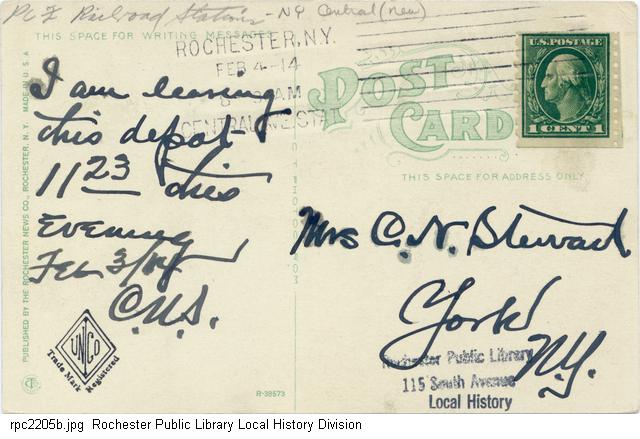 Pc Z Railroad Stations - NY Central (new)
THIS SPACE FOR WRITING MESSAGES
ROCHESTER, N.Y.
FEB 4-14
AM
CENTRAL AVE. STA.
POST
CARD
THIS SPACE FOR ADDRESS ONLY
U.S. POSTAGE
1 CENT 1
I am leaving
this depot
11 23 this
Evening
Feb 3/04
C.N.S.
Mrs C. N. Stewart
York
N.Y.
Rochester Public Library
115 South Avenue
Local History
PUBLISHED BY THE ROCHESTER NEWS CO., ROCHESTER, N. Y. MADE IN U. S. A
UNCO
Trade Mark Registered
R-38573
rpc2205b.jpg Rochester Public Library Local History Division